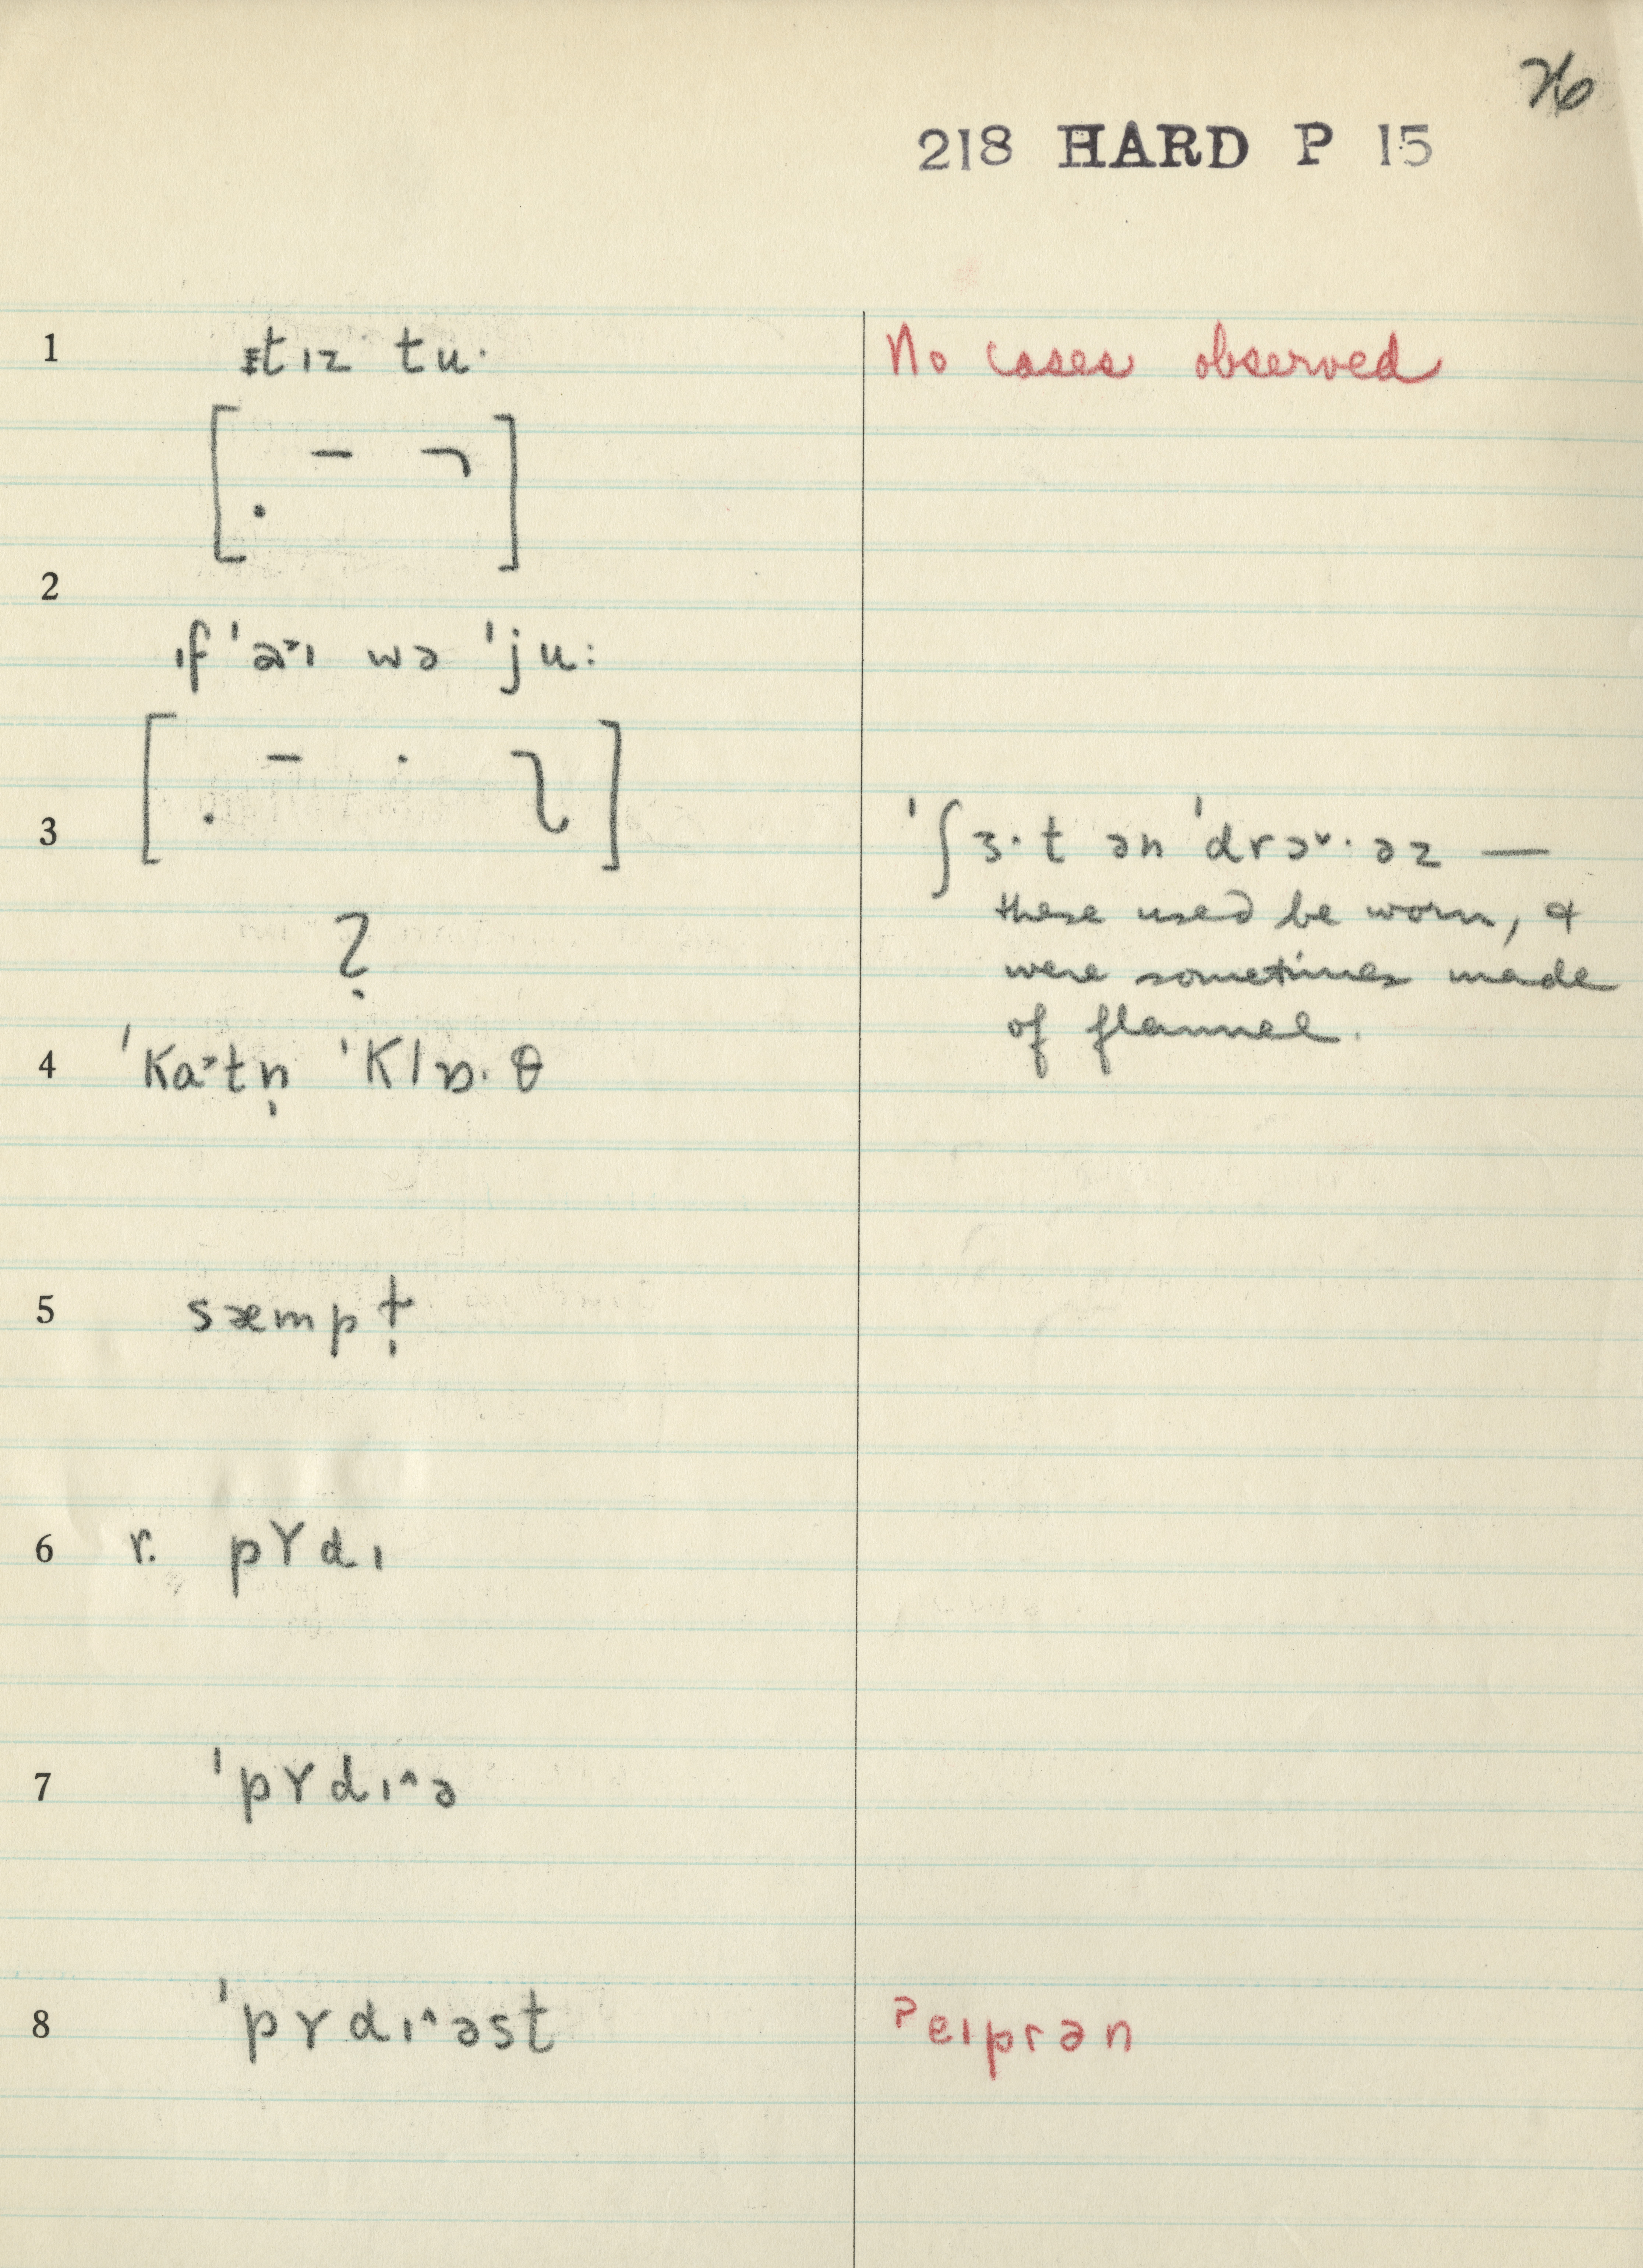 76
218 HARD P 15
1 ɪtɪz tu·
No cases observed
2
ɪf ˈa˃ɪ wə ˈju:
3
ˈʃɜ·t ən ˈdrɔ˅·əz —
these used be worn, &
were sometimes made
of flannel.
?
4 ˈka˃tn̩ ˈklɒ·θ
5 sæmpɫ̩
6 r. pʏdɪ
7 ˈpʏdɪ^ə
8 ˈpʏdɪ^əst
ʔeɪprən